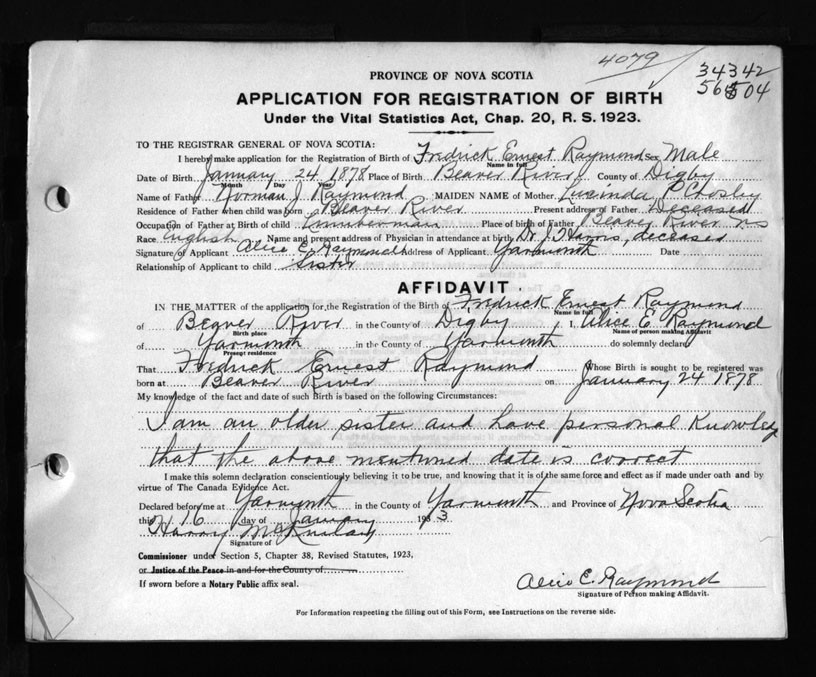 4079
34342
PROVINCE OF NOVA SCOTIA
APPLICATION FOR REGISTRATION OF BIRTH
Under the Vital Statistics Act, Chap. 20, R. S. 1923.
TO THE REGISTRAR GENERAL OF NOVA SCOTIA:
I hereby make application for the Registration of Birth of Fredrick Ernest Raymond Sex Male
Name in full
Date of Birth January 24 1878 Place of Birth Beaver River County of Digby
Month Day Year
Name of Father Norman J. Raymond MAIDEN NAME of Mother Lucinda P Crosby
Residence of Father when child was born Beaver River Present address of Father Deceased
Occupation of Father at Birth of child Lumberman Place of birth of Father Beaver River NS
Race English Name and present address of Physician in attendance at birth Dr J. Harris, deceased
Signature of Applicant Alice E. Raymond Address of Applicant Yarmouth Date
Relationship of Applicant to child Sister
AFFIDAVIT.
IN THE MATTER of the application for the Registration of the Birth of Fredrick Ernest Raymond
Name in full
of Beaver River in the County of Digby I, Alice E Raymond
Birth place Name of person making Affidavit
of Yarmouth in the County of Yarmouth do solemnly declare
Present residence
That Fredrick Ernest Raymond Whose Birth is sought to be registered was
born at Beaver River on January 24 1878
My knowledge of the fact and date of such Birth is based on the following Circumstances:
I am an older sister and have personal Knowledg
that the above mentioned date is correct
I make this solemn declaration conscientiously believing it to be true, and knowing that it is of the same force and effect as if made under oath and by
virtue of The Canada Evidence Act.
Declared before me at Yarmouth in the County of Yarmouth and Province of Nova Scotia
this 16 day of January 1933
Harry
Signature of
Commissioner under Section 5, Chapter 38, Revised Statutes, 1923,
or Justice of the Peace in and for the County of
If sworn before a Notary Public affix seal.
Alice E. Raymond
Signature of Person making Affidavit.
For Information respecting the filling out of this Form, see Instructions on the reverse side.